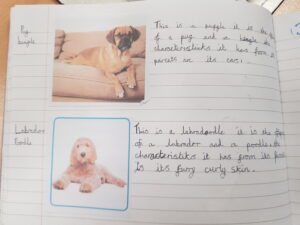 Pug
beagle
This is a puggle it is the
of a pug and a beagle the
characteristicks it has from it
parents are its ears.
Labrador
Poodle
This is a labradoodle it is the
of a labrador and a poodle. the
characteristiks it has from its
is its furry curly skin.